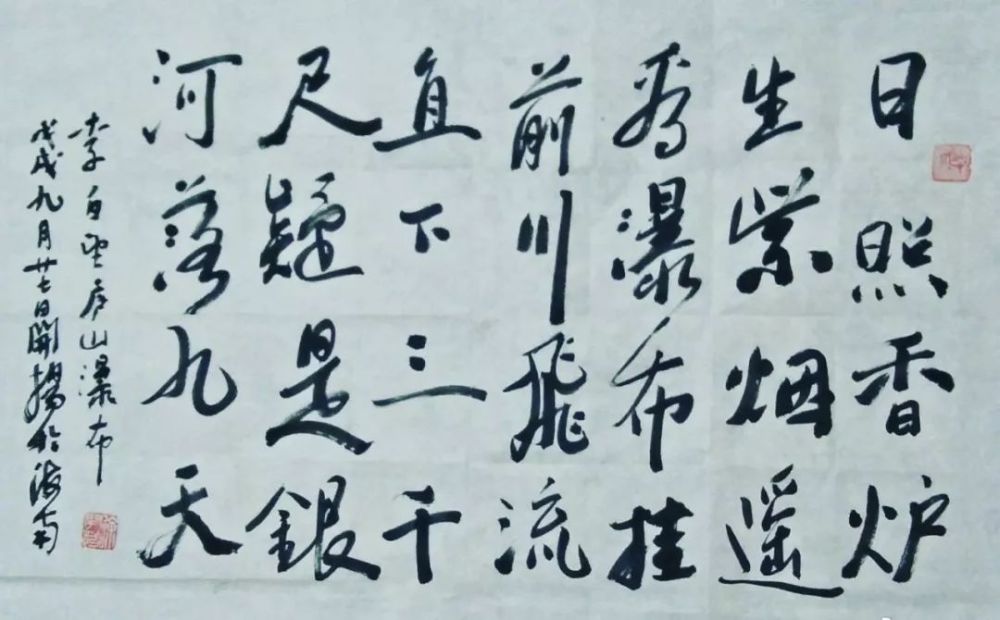 日照香炉
生紫烟遥
看瀑布挂
前川飛流
直下三千
尺疑是銀
河落九天
李白望庐山瀑布
戊戌九月廿七日開揚於海南